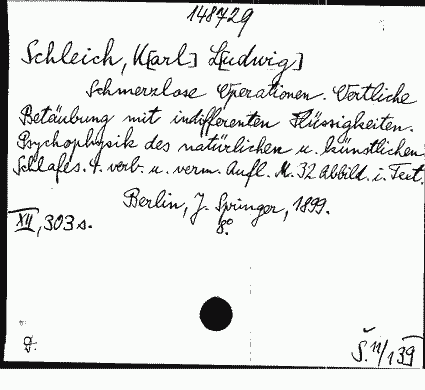 148729
Schleich, K[arl] L[udwig]
Schmerzlose Operationen. Oertliche
Betäubung mit indifferenten Flüssigkeiten.
Psychophysik des natürlichen u. künstlichen
Schlafes. 4. verb. u. verm. Aufl. M. 32 Abbild. i. Text.
Berlin, J. Springer, 1899.
XII, 303 s. 8°.
Š. 11/139